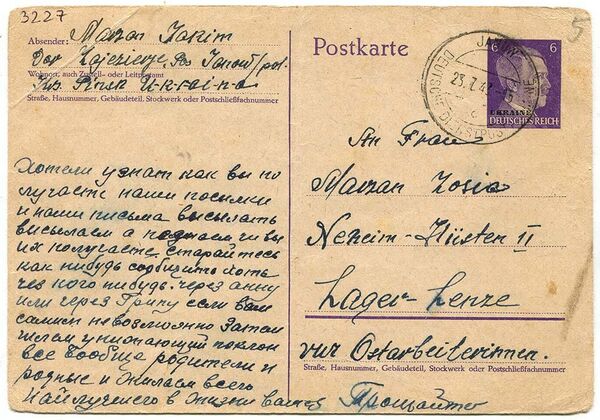 3227
Absender: Mazan Iakim
Dor Kajezicze, Ps Janow/pol.
Wohnort, auch Zustell- oder Leitpostamt
Pinsk Ukraina
Straße, Hausnummer, Gebäudeteil, Stockwerk oder Postschließfachnummer
хотели узнат как вы по
лучаете наши посылки
и наши письма высылать
высылаем а чи вы
их получаете старайтесь
как нибудь сообчить хоть
чез кого нибудь через анну
или через если вам
самим невозможно Затем
низкий поклон
все вообще родители и
родные и жилаем всего
Найлучшего в жизни вашей Прощайте
Postkarte
5
6 6
JANOW
23.7.42
DEUTSCHE DIENSTPOST UKRAINE
UKRAINE
DEUTSCHES REICH
An Frau
Mazan Zosia
Neheim-Hüsten II
Lager-Lenze
Ostarbeiterinnen.
Straße, Hausnummer, Gebäudeteil, Stockwerk oder Postschließfachnummer